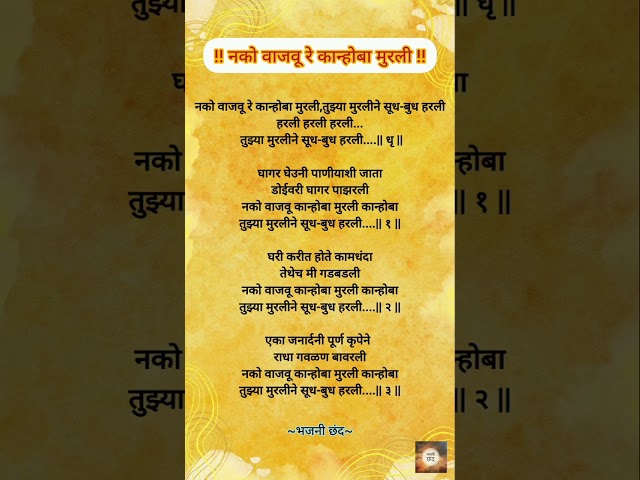 !! नको वाजवू रे कान्होबा मुरली !!
नको वाजवू रे कान्होबा मुरली,तुझ्या मुरलीने सूध-बुध हरली
हरली हरली हरली...
तुझ्या मुरलीने सूध-बुध हरली....|| धृ ||
घागर घेउनी पाणीयाशी जाता
डोईवरी घागर पाझरली
नको वाजवू कान्होबा मुरली कान्होबा
तुझ्या मुरलीने सूध-बुध हरली....|| १ ||
घरी करीत होते कामधंदा
तेथेच मी गडबडली
नको वाजवू कान्होबा मुरली कान्होबा
तुझ्या मुरलीने सूध-बुध हरली....|| २ ||
एका जनार्दनी पूर्ण कृपेने
राधा गवळण बावरली
नको वाजवू कान्होबा मुरली कान्होबा
तुझ्या मुरलीने सूध-बुध हरली....|| ३ ||
~भजनी छंद~